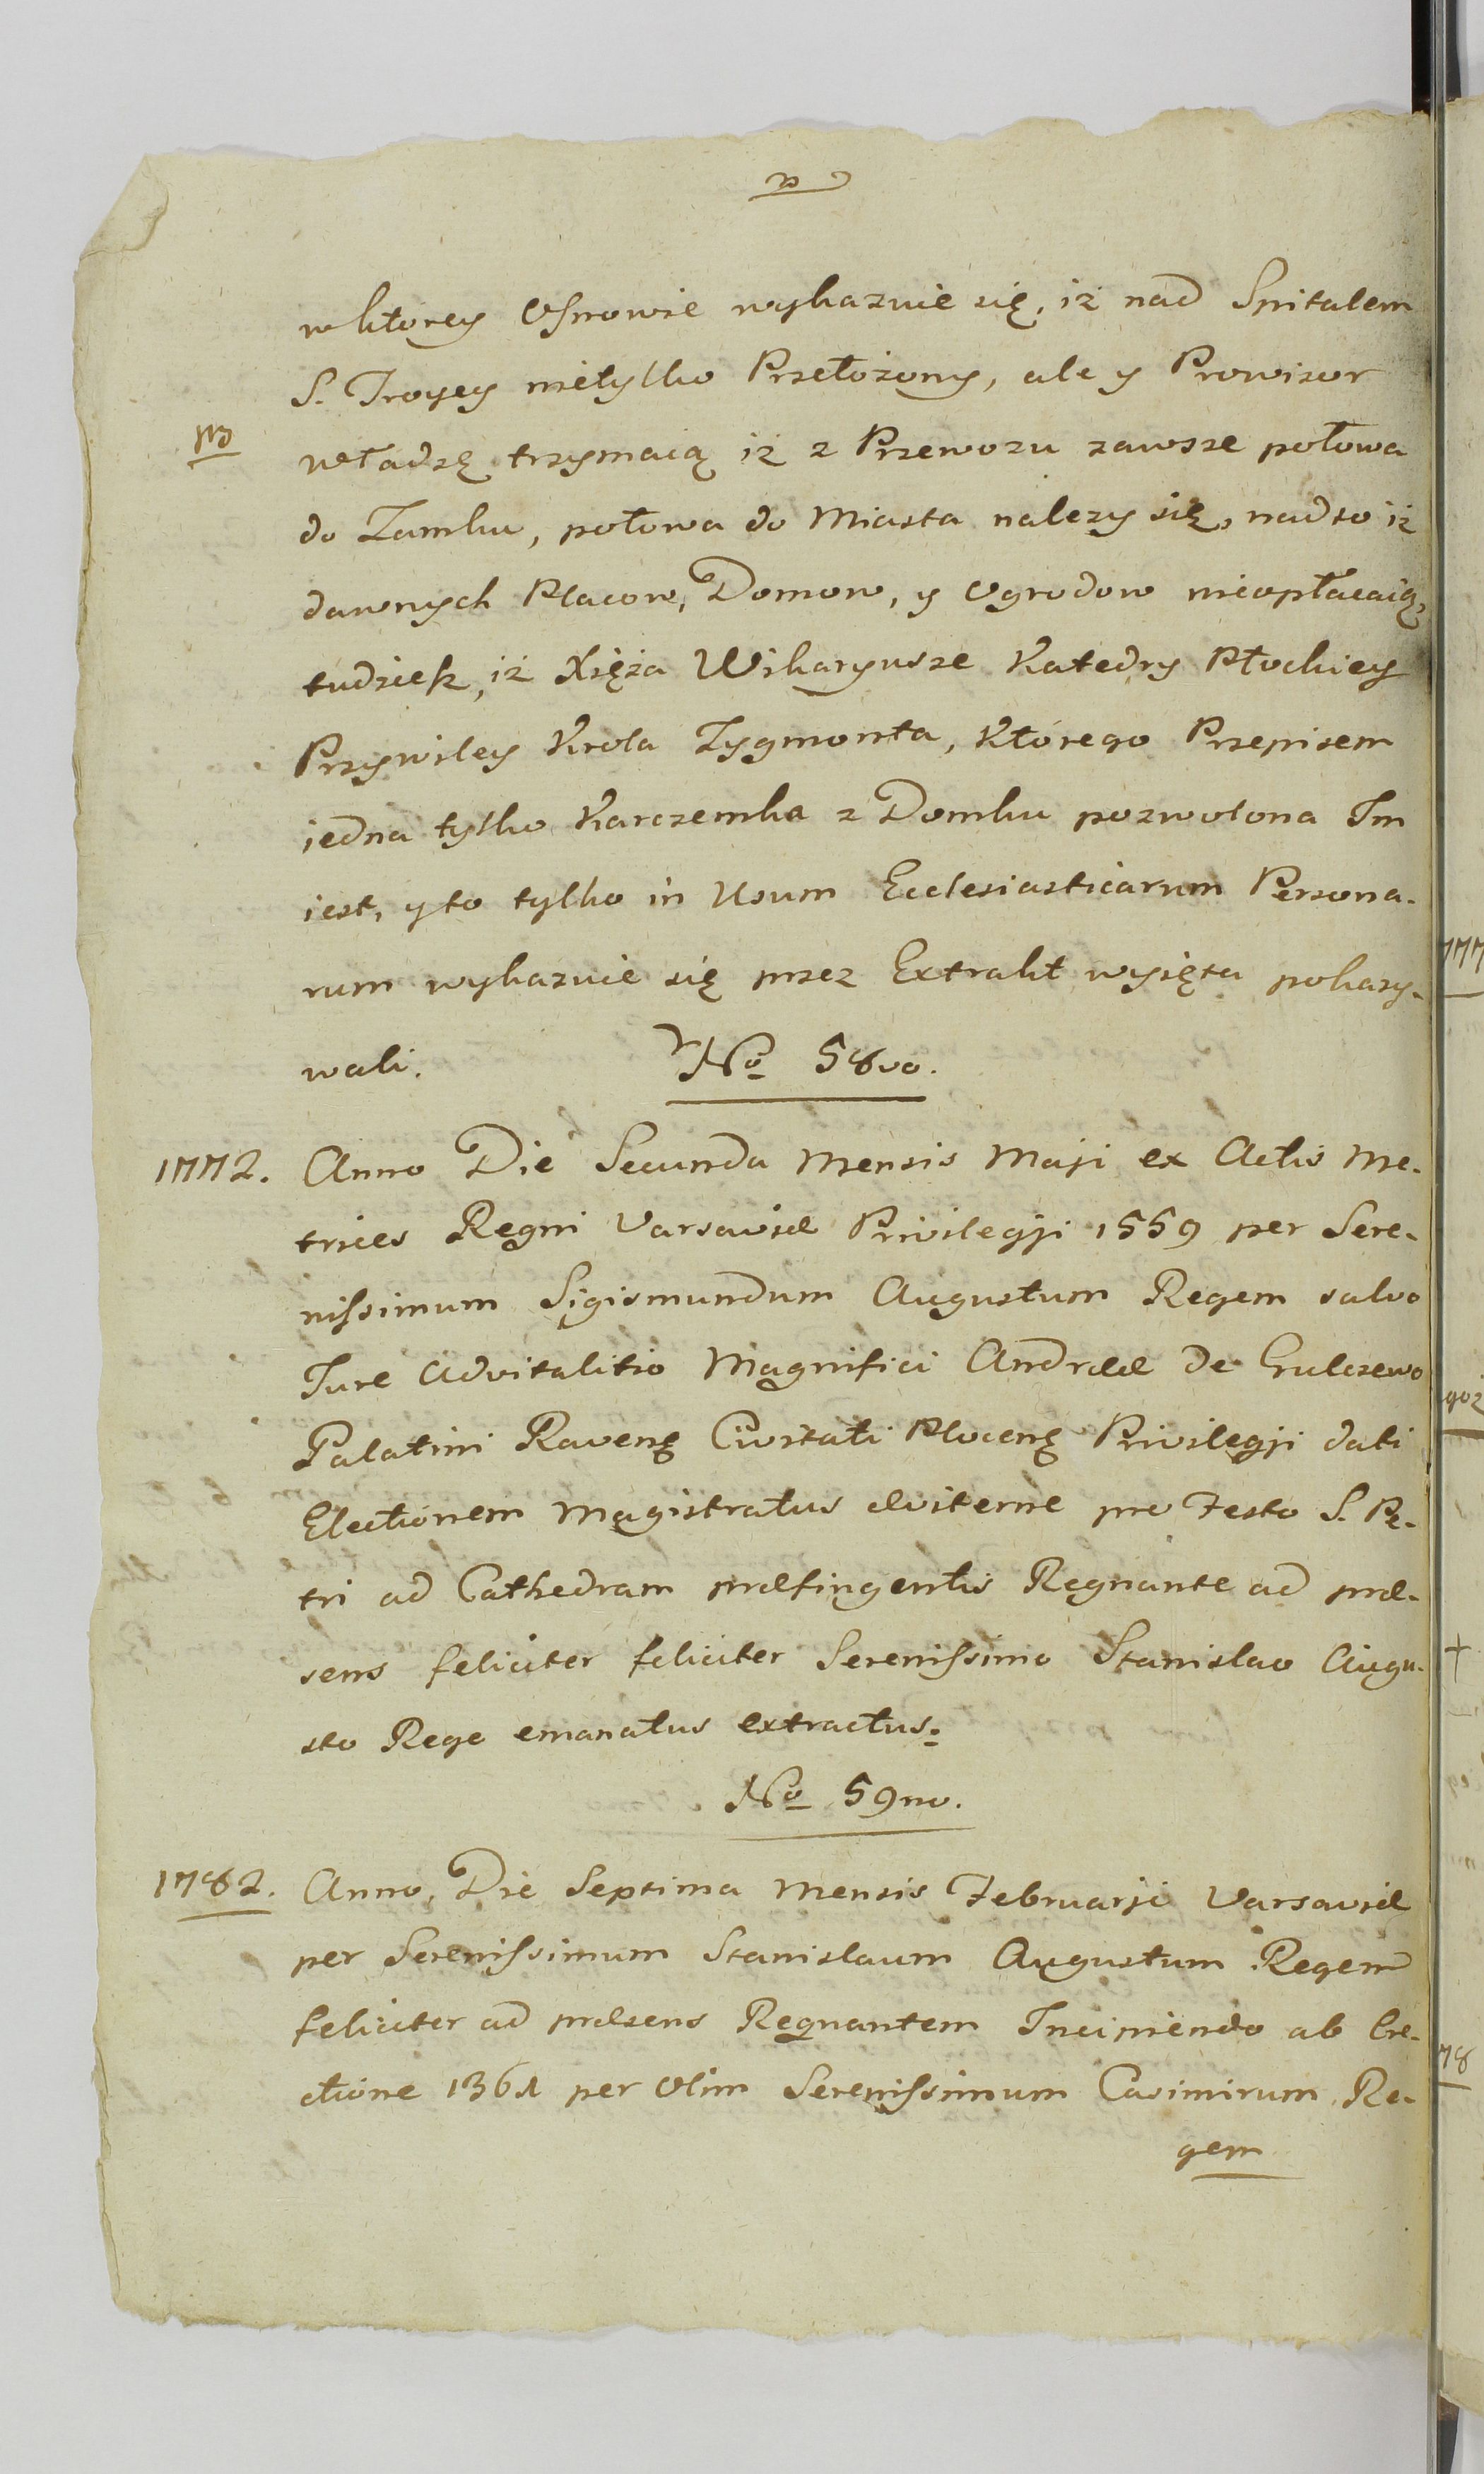 w ktorey Osnowie wykazuie się, iż nad Spitalem
S. Troycy nietylko Przełożony, ale y Prowizor
władzę trzymaią iż z Przewozu zawsze połowa
do Zamku, połowa do Miasta nalezy się, nadto iż
dawnych Placow, Domow, y Ogrodow nieopłacaią,
tudzież, iż Xięża Wikaryusze Katedry Płockiey
Przywiley Krola Zygmonta, Którego Przepisem
iedna tylko Karczemka z Domku pozwolona Im
iest, y to tylko in Usum Ecclesiasticarum Persona-
rum wykazuie się przez Extrakt wyięta pokazy-
wali. No 58vo.
1772. Anno Die Secunda Mensis Maji ex Actis Me-
trices Regni Varsaviæ Privilegji 1559 per Sere-
nissimum Sigismundum Augustum Regem salvo
Jure Advitalitio Magnifici Andreæ de Gulczewo
Palatini Ravenę Civitati Plocenę Privilegji dati
Electionem Magistratus æviterne pro Festo S. Pe-
tri ad Cathedram præfingentis Regnante ad præ-
sens feliciter feliciter Serenissimo Stanislao Augu-
sto Rege emanatus extractus.
No 59no.
1782. Anno, Die Septima Mensis Februarji Varsaviæ
per Serenissimum Stanislaum Augustum Regem
feliciter ad præsens Regnantem Incipiendo ab Ere-
ctione 1361 per Olim Serenissimum Casimirum Re-
gem